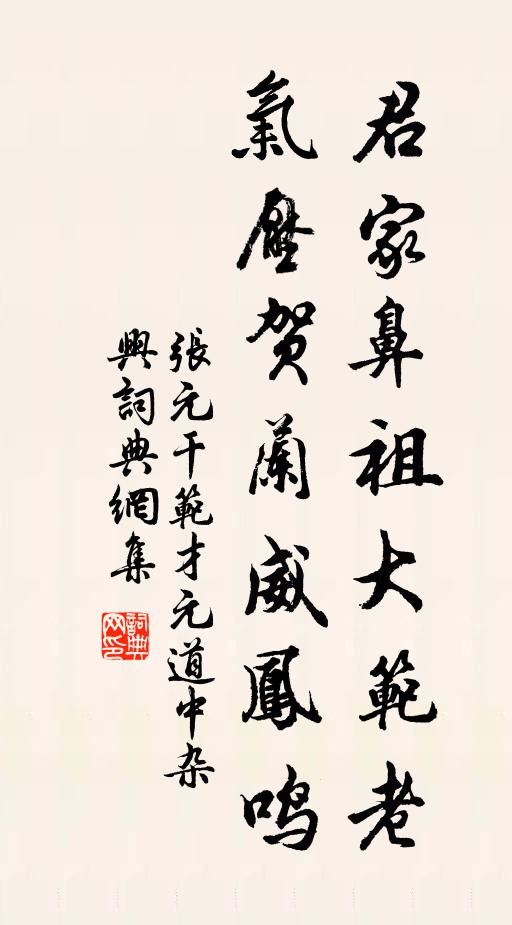 君家鼻祖大範老
氣壓贺蘭威鳳鸣
張元干範才元道中杂
興詞典網集
詞典
网印